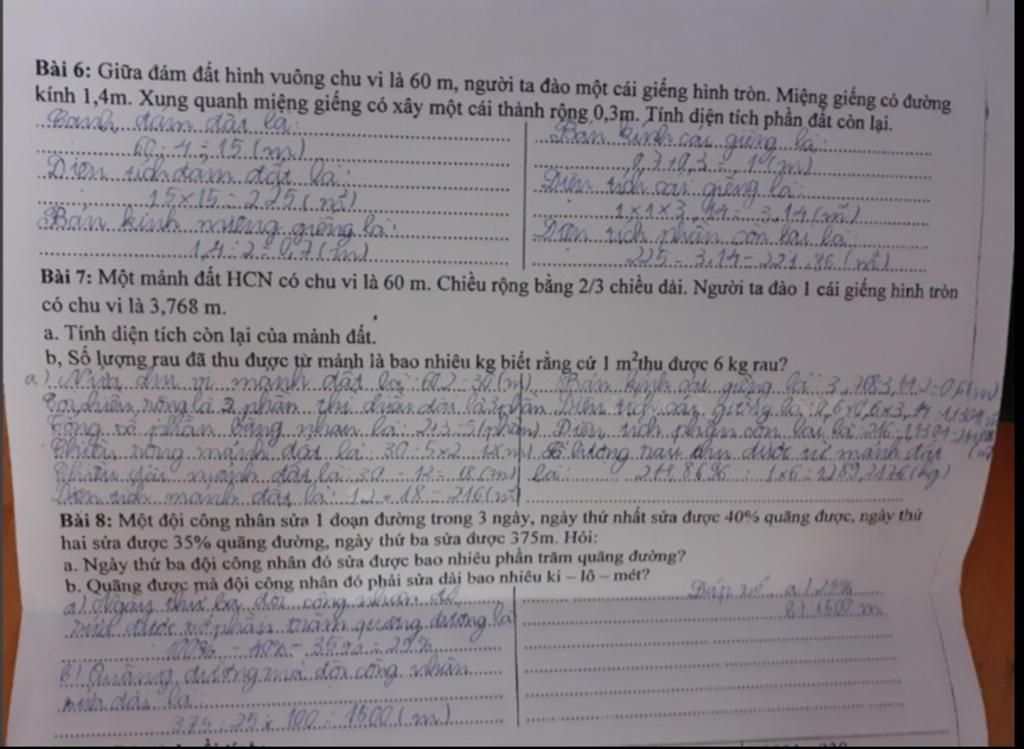 Bài 6: Giữa đám đất hình vuông chu vi là 60 m, người ta đào một cái giếng hình tròn. Miệng giếng có đường
kính 1,4m. Xung quanh miệng giếng có xây một cái thành rộng 0,3m. Tính diện tích phần đất còn lại.
đám đất là:
60 : 4 = 15 (m)
Diện tích đám đất là:
15 x 15 = 225 (m²)
Bán kính miệng giếng là:
1,4 : 2 = 0,7 (m)
Bán kính cái giếng là:
0,7 + 0,3 = 1 (m)
Diện tích cái giếng là:
1 x 1 x 3,14 = 3,14 (m²)
Diện tích phần còn lại là:
225 - 3,14 = 221,86 (m²)
Bài 7: Một mảnh đất HCN có chu vi là 60 m. Chiều rộng bằng 2/3 chiều dài. Người ta đào 1 cái giếng hình tròn
có chu vi là 3,768 m.
a. Tính diện tích còn lại của mảnh đất.
b, Số lượng rau đã thu được từ mảnh là bao nhiêu kg biết rằng cứ 1 m²thu được 6 kg rau?
a) Nửa chu vi mảnh đất là: 60:2=30(m)
chiều rộng là 2 phần thì chiều dài là 3 phần
Tổng số phần bằng nhau là: 2+3=5(phần)
Chiều rộng mảnh đất là: 30:5x2=12(m)
Chiều dài mảnh đất là: 30-12=18(m)
Diện tích mảnh đất là: 12x18=216(m²)
Bán kính cái giếng là:
Diện tích cái giếng là: 0,6x0,6x3,14
Diện tích phần còn lại là:
Số lượng rau thu được từ mảnh đất
là:
Bài 8: Một đội công nhân sửa 1 đoạn đường trong 3 ngày, ngày thứ nhất sửa được 40% quãng được, ngày thứ
hai sửa được 35% quãng đường, ngày thứ ba sửa được 375m. Hỏi:
a. Ngày thứ ba đội công nhân đó sửa được bao nhiêu phần trăm quãng đường?
b. Quãng được mà đội công nhân đó phải sửa dài bao nhiêu ki – lô – mét?
a) Ngày thứ ba đội công nhân đó
được số phần trăm quãng đường là
100% - 40% - 35% = 25%
b) Quãng đường mà đội công nhân
dài là:
375 : 25 x 100 = 1500 (m)
Đáp số a) 25%
b) 1500 m